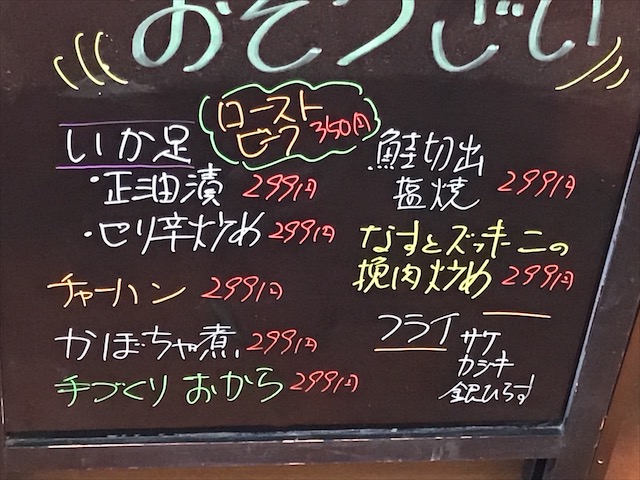 おそうざい
ロースト
ビーフ 350円
いか足
・正油漬 299円
・セリ辛炒め 299円
チャーハン 299円
かぼちゃ煮 299円
手づくりおから 299円
鮭切出
塩焼 299円
なすとズッキーニの
挽肉炒め 299円
フライ サケ
カジキ
銀ひらす